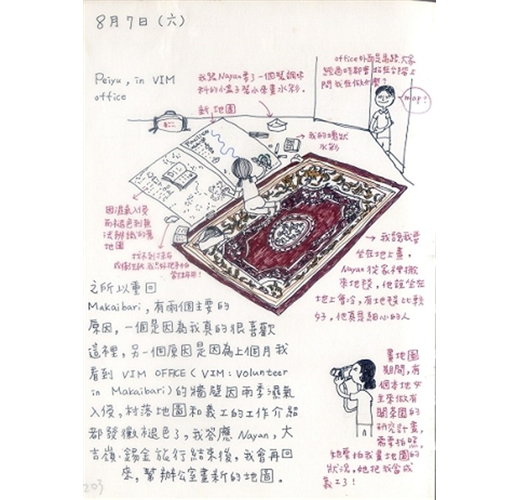 8月7日(六)
Peiyu, in VIM
office
我跟Nayan要了一個塑膠
料的小盒子裝水畫水彩。
新地圖
office外面是馬路,大家
經過時都會站在
問我在做什麼?
map?
我的塊狀
水彩
因濕氣入侵
而褪色到無
法辨識的舊
地圖
我說我要
坐在地上畫,
Nayan從家裡搬
來地毯,他說坐在
地上會冷,有地毯比較
好,他真是細心的人
之所以重回
Makaibari,有兩個主要的
原因,一個是因為我真的很喜歡
這裡,另一個原因是因為上個月我
看到 VIM OFFICE (VIM: Volunteer
in Makaibari)的牆壁因雨季濕氣
入侵,村落地圖和義工的工作介紹
都發黴褪色了,我答應Nayan,大
吉嶺、錫金旅行結束後,我會再回
來,幫辦公室畫新的地圖。
畫地圖
期間,有
個本地女
生來做有
關茶園的
研究計畫,
需要拍照。
她要拍我畫地圖的
狀況,她把我當成
義工了!
203